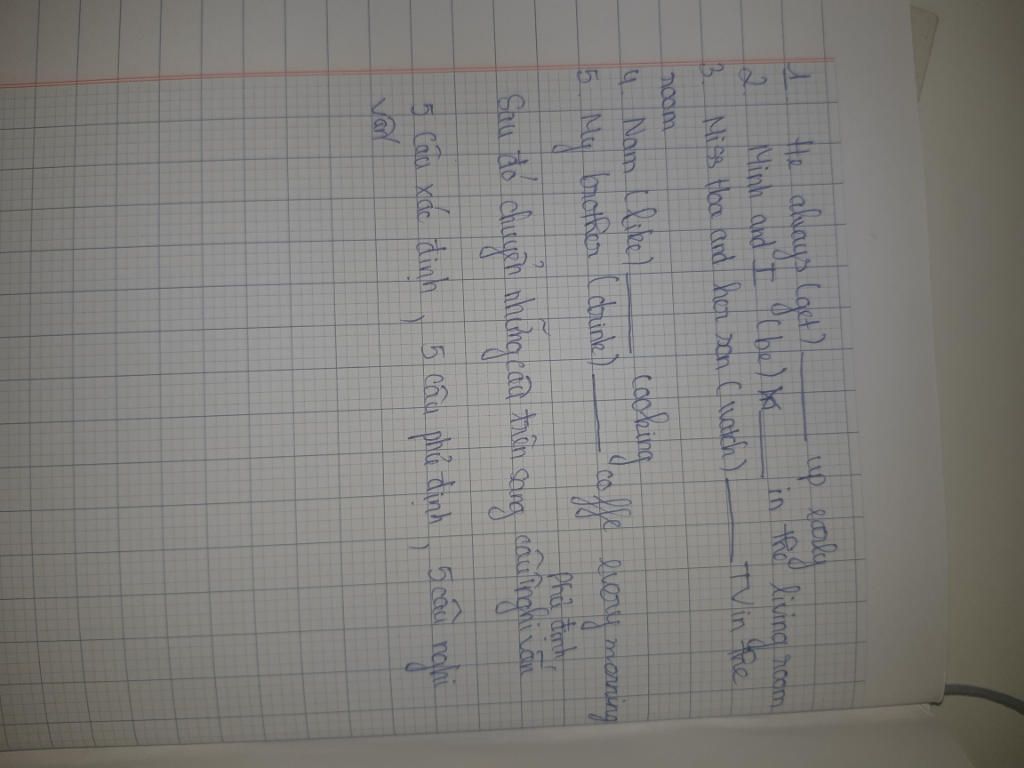 1 He always (get) ____ up early
2 Minh and I (be) ____ in the living room
3. Miss Hoa and her son (watch) ____ TV in the
room
4 Nam (like) ____ cooking
5. My brother (drink) ____ coffe every morning
phủ định
Sau đó chuyển những câu trên sang câu nghi vấn
5 câu xác định, 5 câu phủ định, 5 câu nghi
vấn